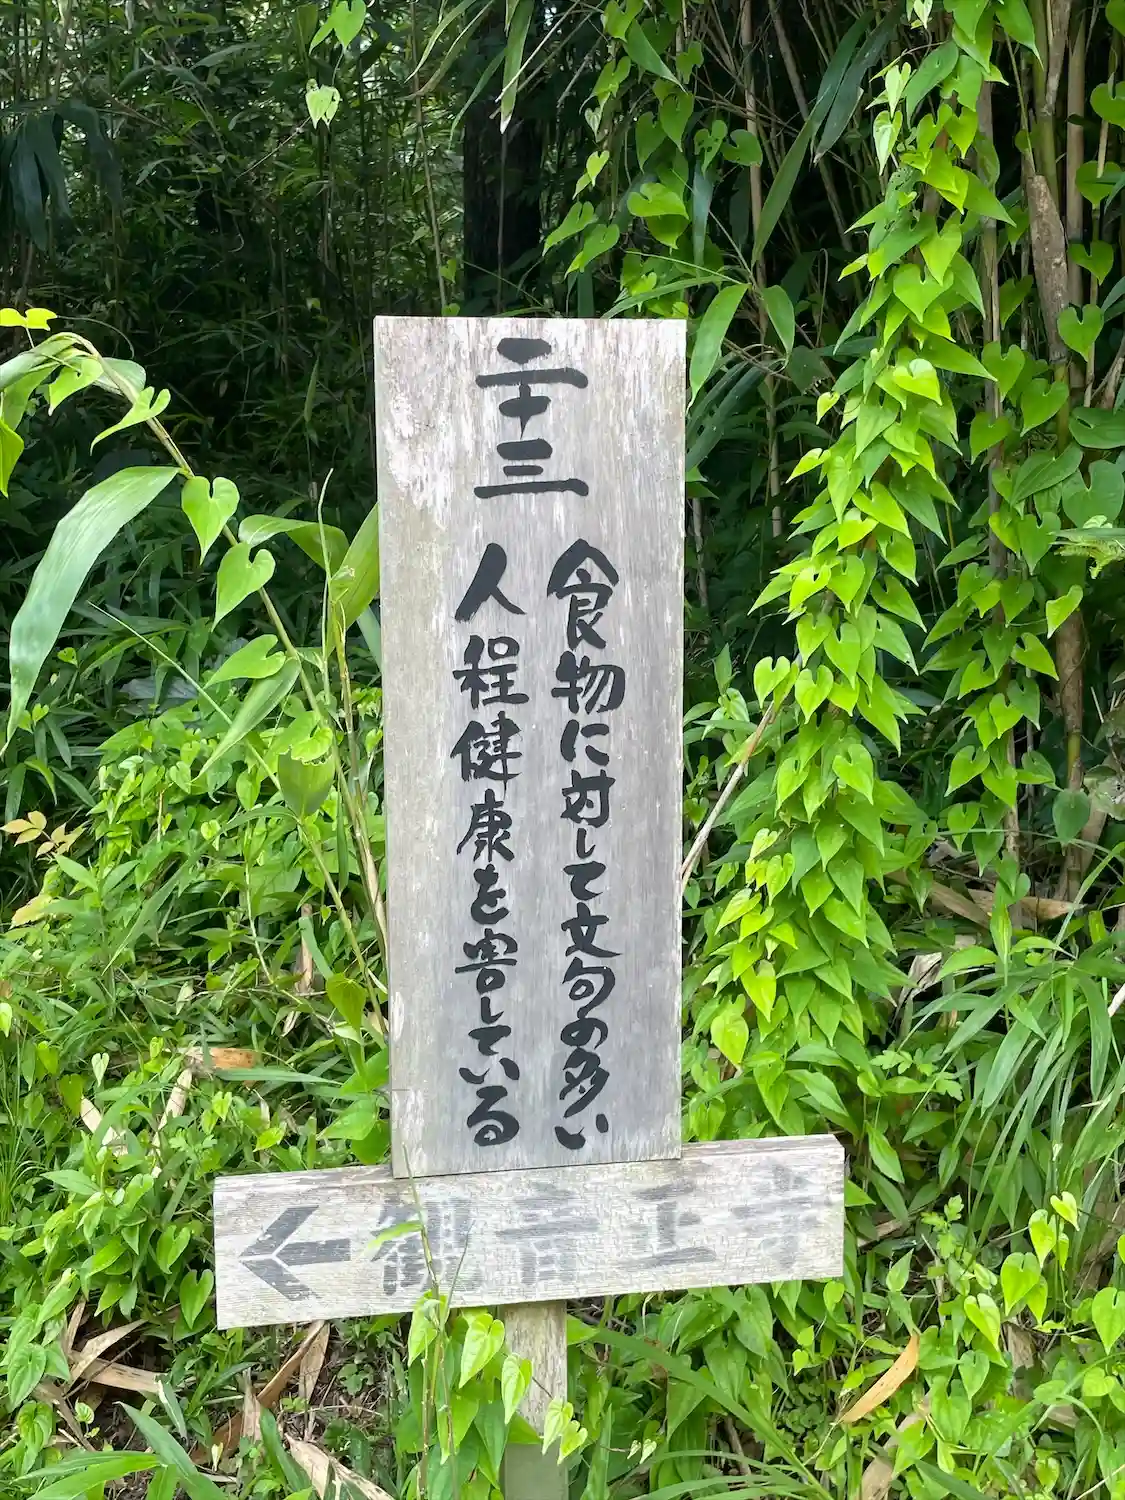 二十三
食物に対して文句の多い
人程健康を害している
← 観音正寺